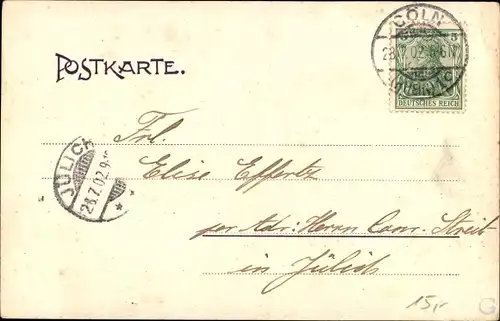 POSTKARTE.
CÖLN
5
28.7.02.
DEUTSCHES REICH
JÜLICH
28.7.02.9
Frl.
Elise Effertz
per Adr. Herrn Conr. Streit
in Jülich
15,-